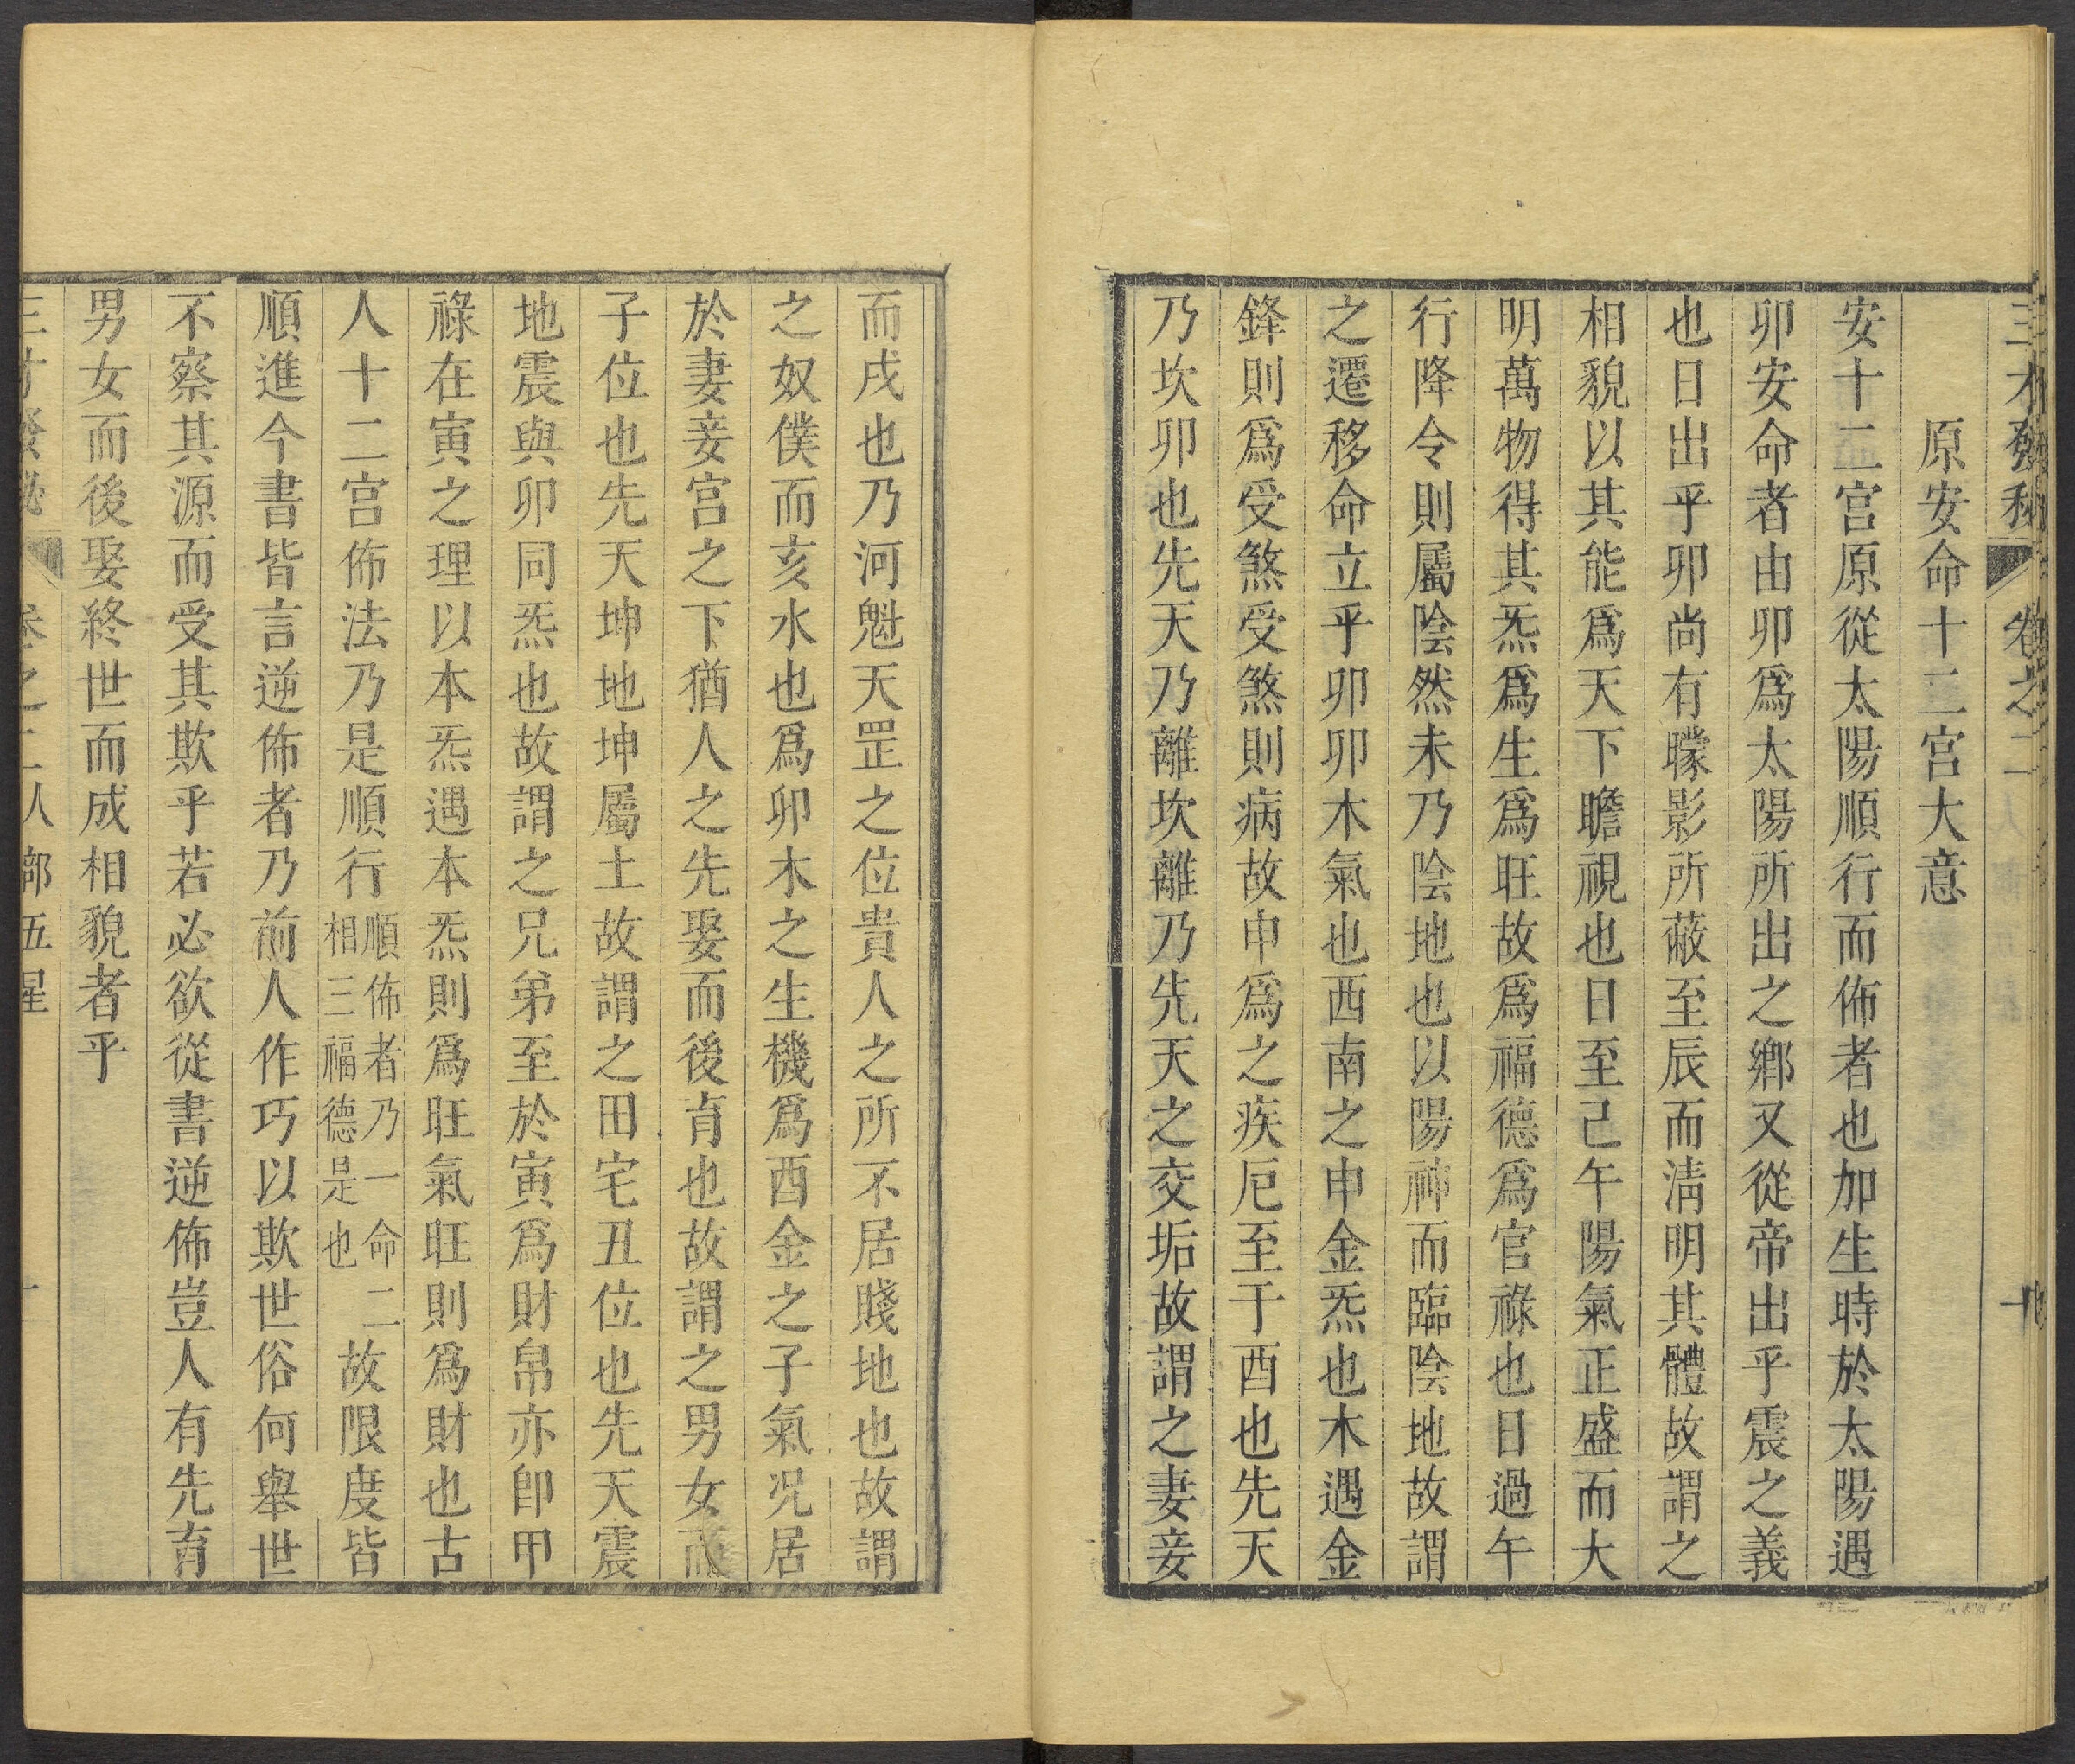 三才發秘 卷之二人
原安命十二宮大意
安十二宮原從太陽順行而佈者也加生時於太陽遇
卯安命者由卯爲太陽所出之鄕又從帝出乎震之義
也日出乎卯尚有曚影所蔽至辰而淸明其體故謂之
相貌以其能爲天下瞻視也日至己午陽氣正盛而大
明萬物得其炁爲生爲旺故爲福德爲官祿也日過午
行降令則屬陰然未乃陰地也以陽神而臨陰地故謂
之遷移命立乎卯卯木氣也西南之申金炁也木遇金
鋒則爲受煞受煞則病故申爲之疾厄至于酉也先天
乃坎卯也先天乃離坎離乃先天之交垢故謂之妻妾
而戌也乃河魁天罡之位貴人之所不居賤地也故謂
之奴僕而亥水也爲卯木之生機爲酉金之子氣况居
於妻妾宮之下猶人之先娶而後育也故謂之男女而
子位也先天坤地坤屬土故謂之田宅丑位也先天震
地震與卯同炁也故謂之兄弟至於寅爲財帛亦卽甲
祿在寅之理以本炁遇本炁則爲旺氣旺則爲財也古
人十二宮佈法乃是順行順佈者乃一命二相三福德是也故限度皆
順進今書皆言逆佈者乃前人作巧以欺世俗何舉世
不察其源而受其欺乎若必欲從書逆佈豈人有先育
男女而後娶終世而成相貌者乎
三才發秘 卷之二人部五星